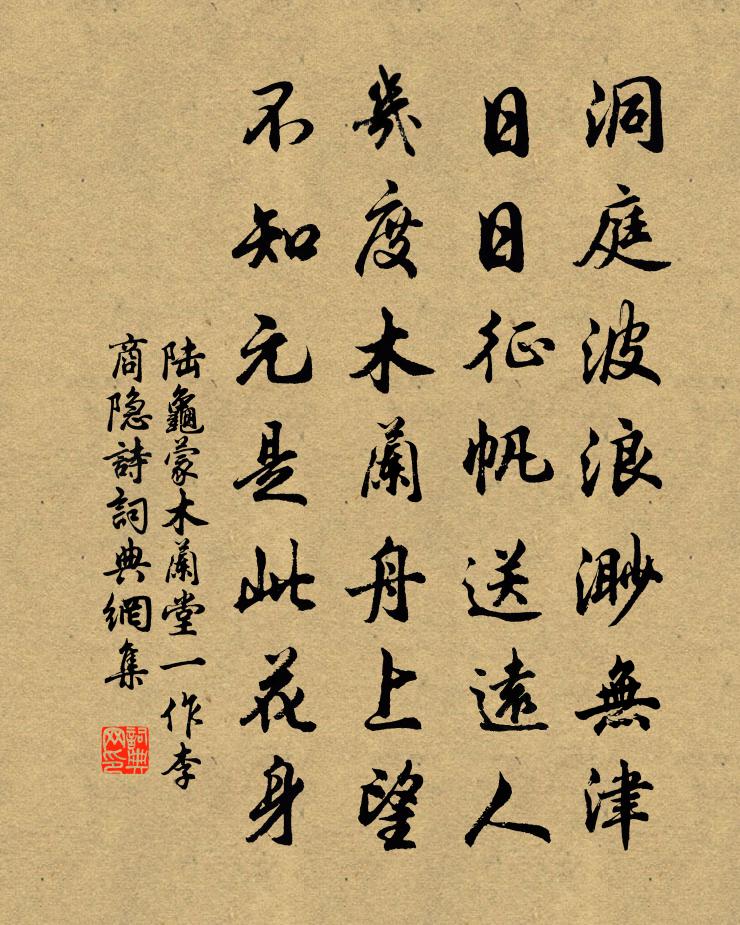 洞庭波浪渺無津
日日征帆送遠人
幾度木蘭舟上望
不知元是此花身
陆龜蒙木蘭堂一作李
商隐詩詞典網集
詞典
网印